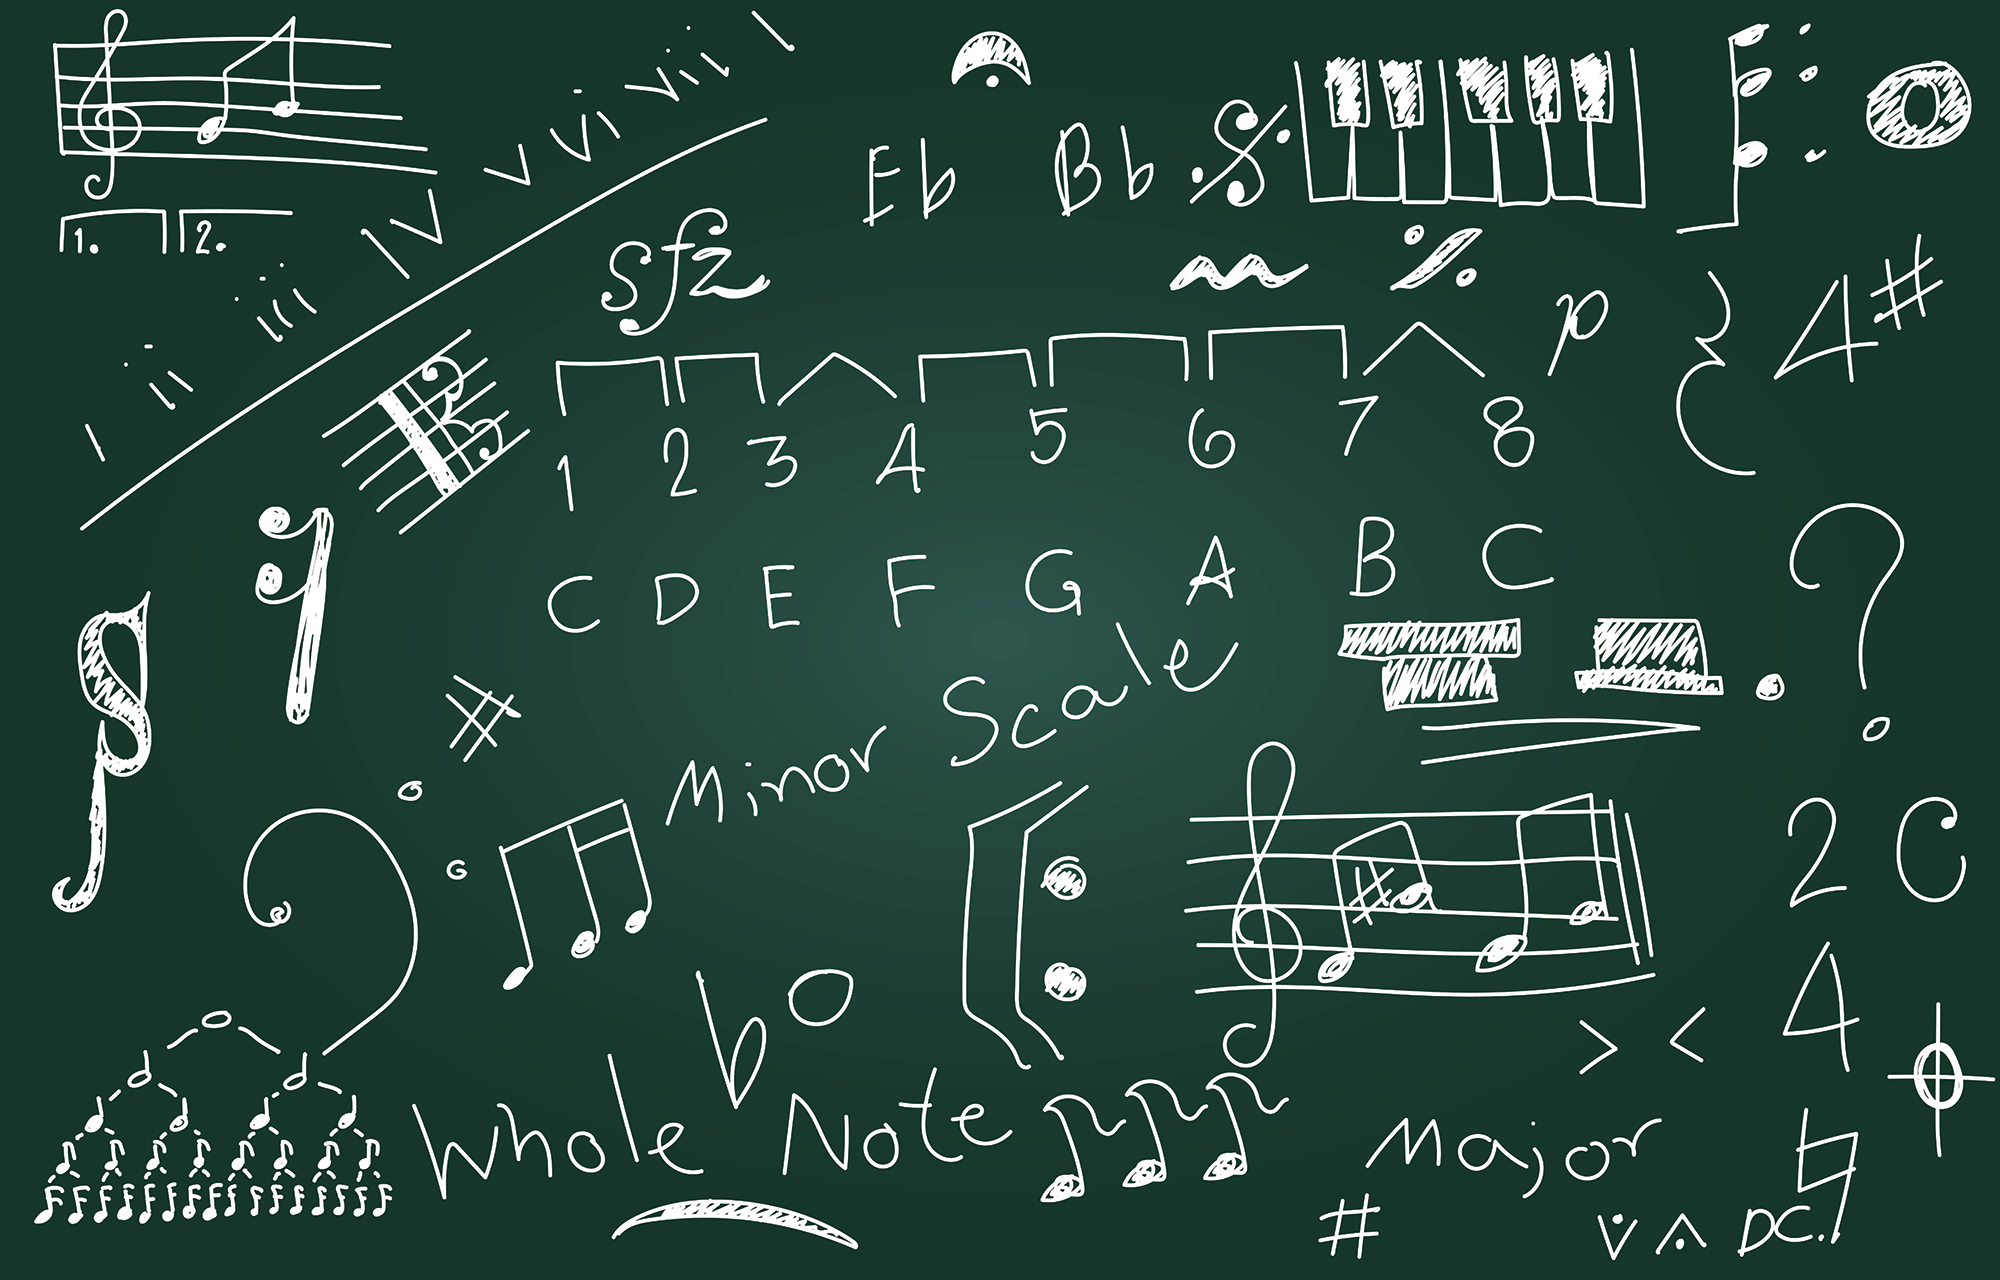 1. 2.
i ii iii IV V vi vii I
Eb Bb
sfz
p
4#
1 2 3 4 5 6 7 8
C D E F G A B C
Minor Scale
2 C
4
Whole Note
Major
D.C.